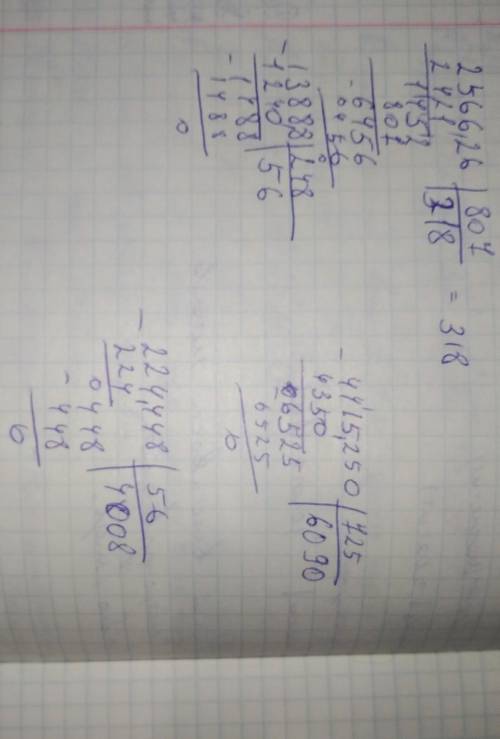 2566,26 | 807
2421 | 318 = 318
1452
807
- 6456
6456
0
- 13888 | 248
1240 | 56
- 1488
1488
0
- 4415,250 | 725
4350 | 6090
06525
6525
0
- 224,448 | 56
224 | 4008
0448
- 448
0